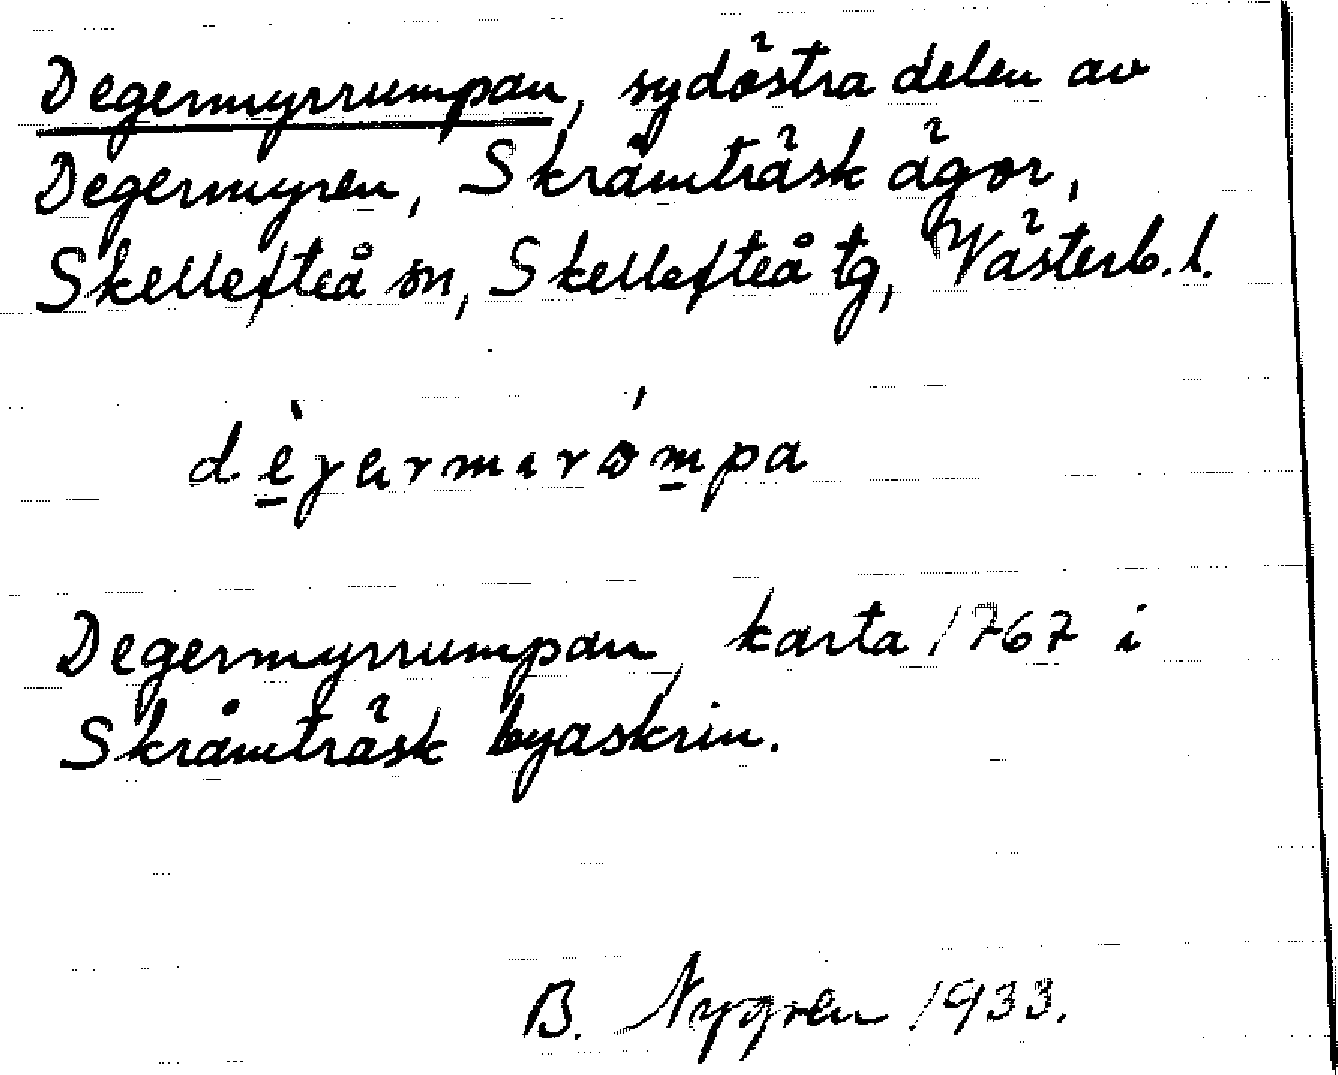 Degermyrrumpan, sydöstra delen av
Degermyren, Skråmträsk ägor,
Skellefteå sn, Skellefteå tg, Västerb. l.
Degermyrrumpan, karta 1767 i
Skråmträsk byaskrin.
B. Nygren 1933.